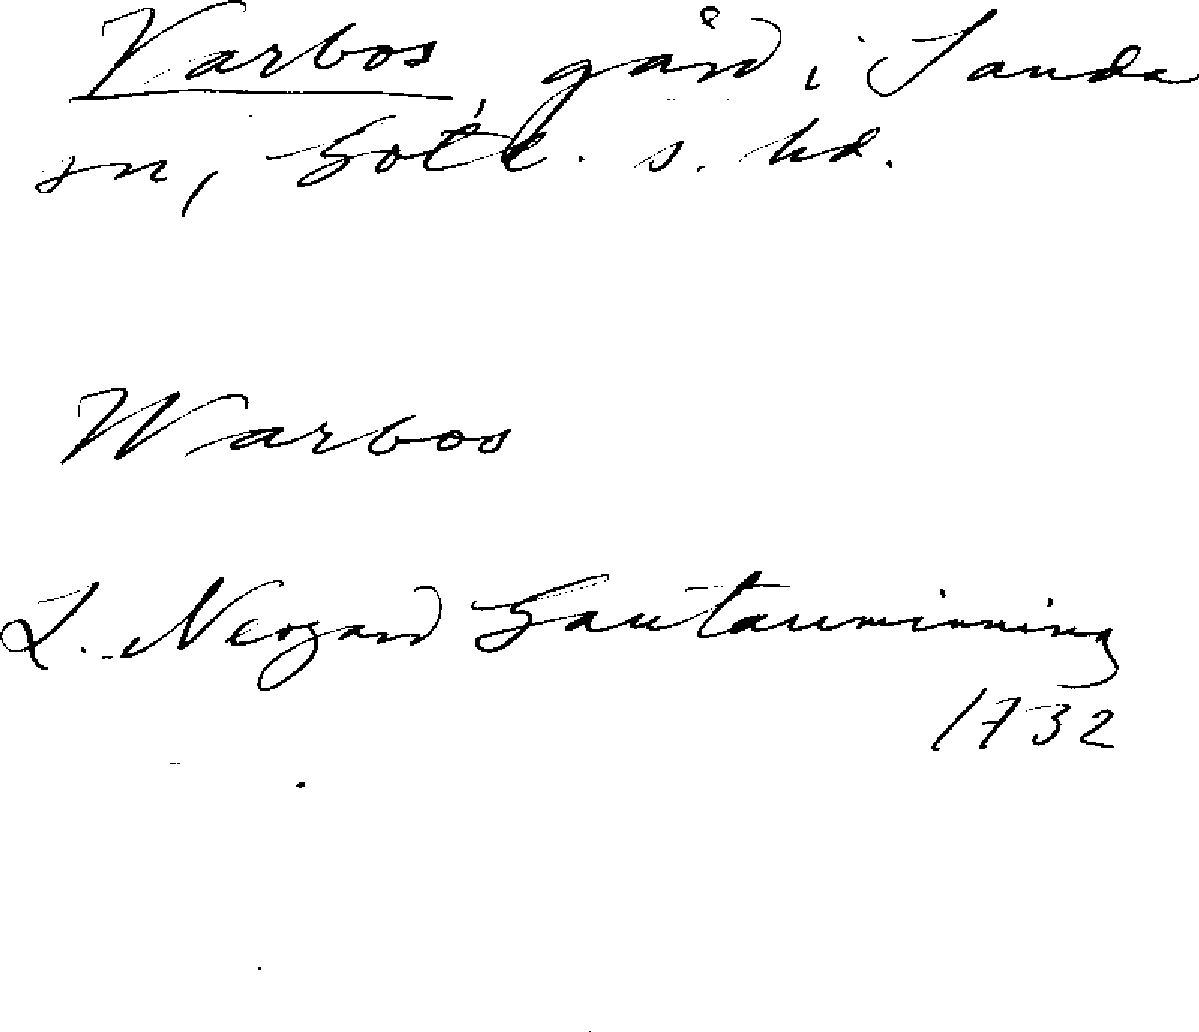 Varbos, gård i Sanda
sn, Gotl. s. hd.
Warbos
L. Neogard Gautauminning
1732